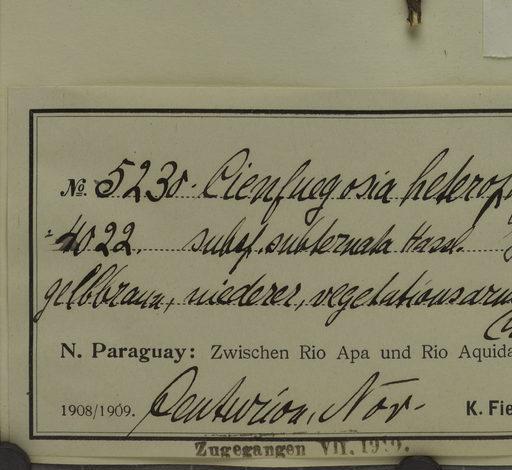 No. 5230. Cienfuegosia heterop
= 4022. subsp. subternata Hassl.
gelbbraun, niederer, vegetationsarm
N. Paraguay: Zwischen Rio Apa und Rio Aquida
1908/1909. Centurion, Nov. K. Fie
Zugegangen VII. 1919.